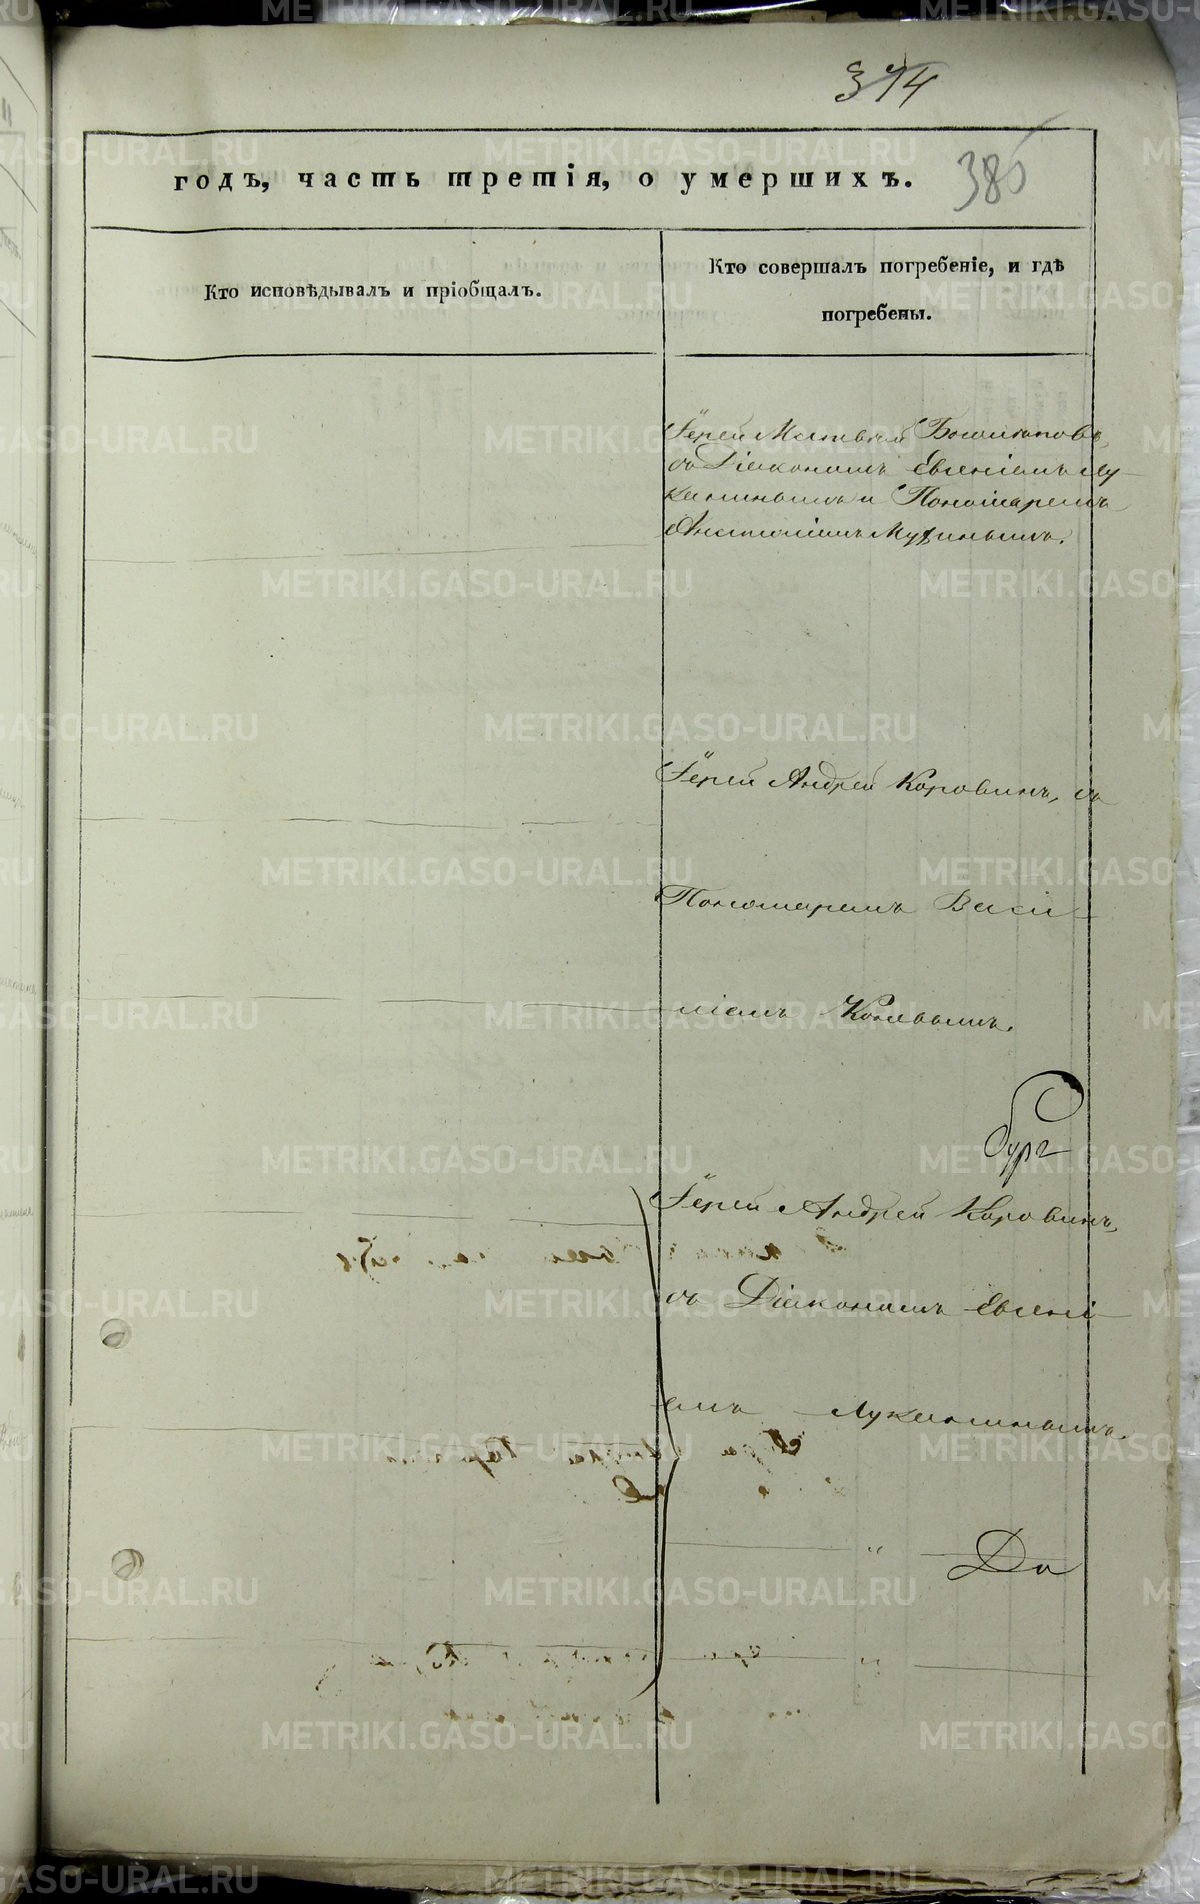 374
385
годъ, часть третія, о умершихъ.
Кто исповѣдывалъ и пріобщалъ.
Кто совершалъ погребеніе, и гдѣ
погребены.
Іерей Матвѣй
съ Діакономъ Евгеніемъ Лу-
канинымъ и Пономаремъ
Мухинымъ.
Іерей Андрей Коровинъ, съ
Пономаремъ Васи-
ліемъ
бург
Іерей Андрей Коровинъ,
съ Діакономъ Евгені-
емъ Луканинымъ.
"
"
METRIKI.GASO-URAL.RU